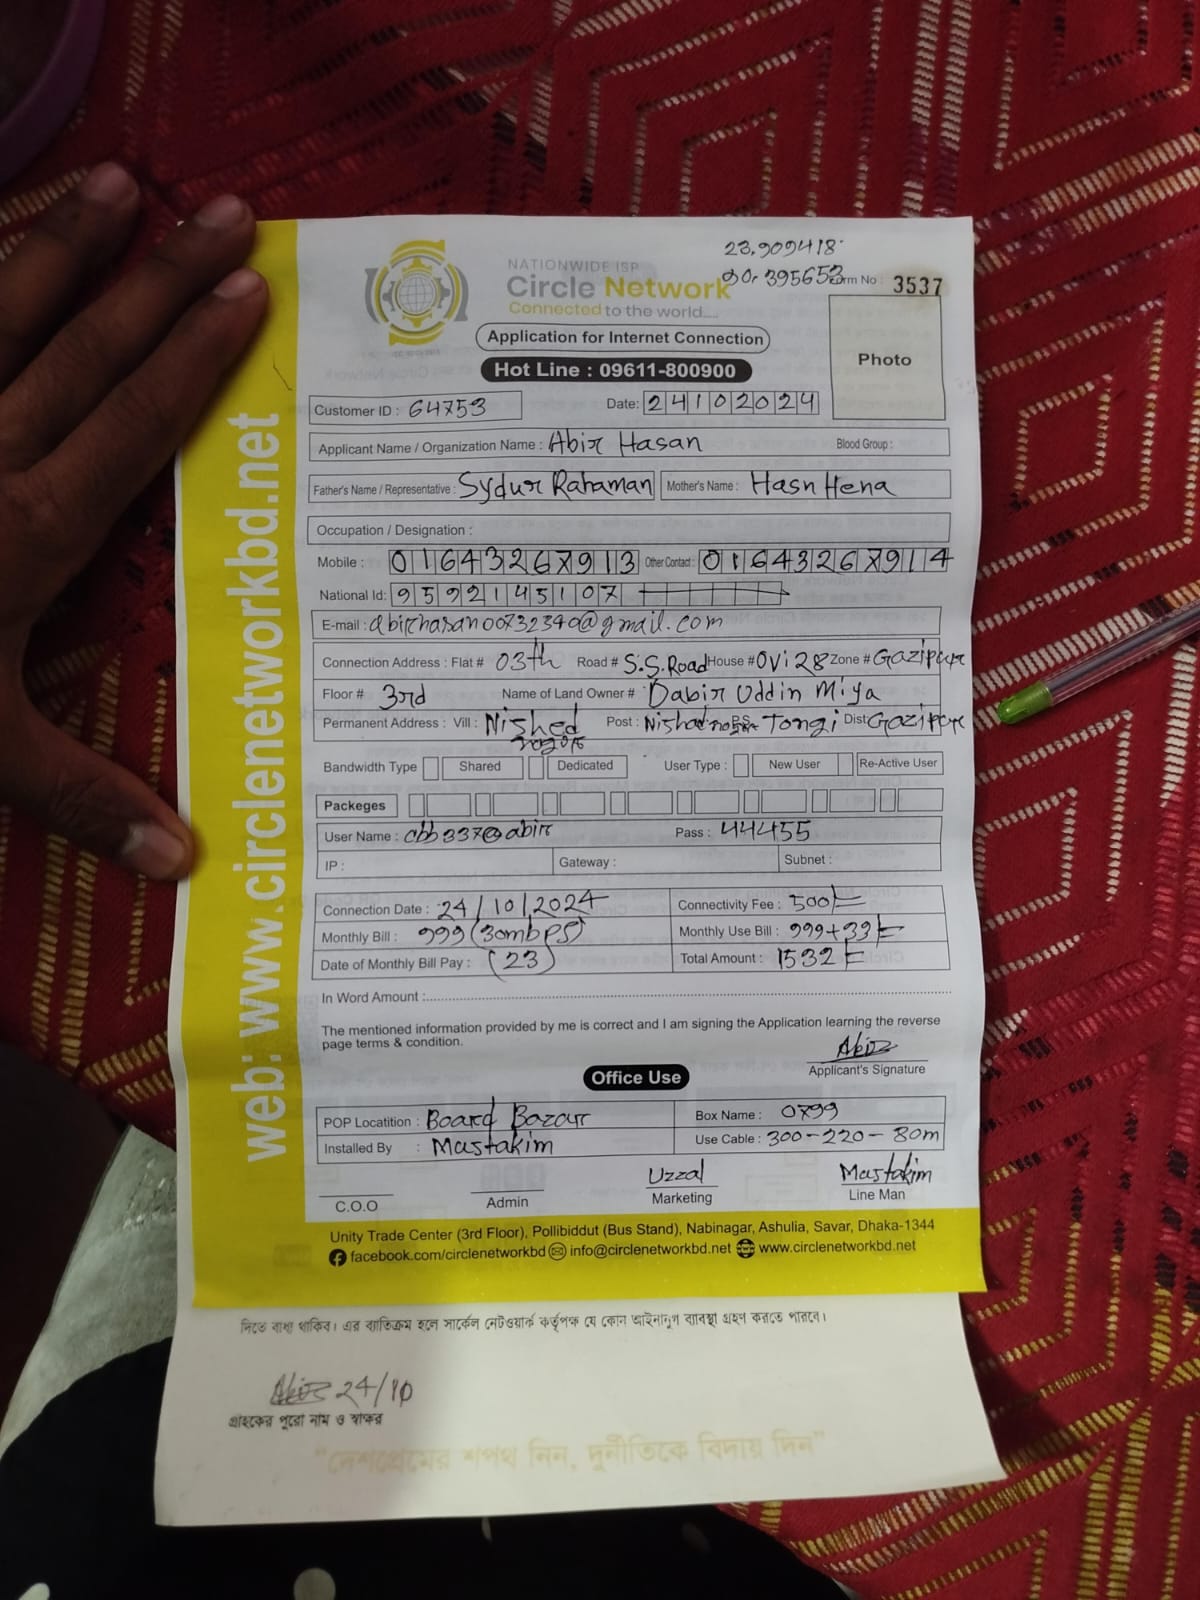 23.909418
90.395653
NATIONWIDE ISP
Circle Network
Connected to the world....
Form No : 3537
Application for Internet Connection
Hot Line : 09611-800900
Photo
Customer ID : 64753 Date: 24102024
Applicant Name / Organization Name : Abir Hasan Blood Group :
Father's Name / Representative : Sydur Rahaman Mother's Name : Hasn Hena
Occupation / Designation :
Mobile : 01643267913 Other Contact : 01643267914
National Id: 9592145107
E-mail : abirhasan00732340@gmail.com
Connection Address : Flat # 03th Road # S.S. Road House # Ovi 28 Zone # Gazipur
Floor # 3rd Name of Land Owner # Dabir Uddin Miya
Permanent Address : Vill : Nished Post : P.S Tongi Dist Gazipur
Bandwidth Type Shared Dedicated User Type : New User Re-Active User
Packeges
User Name : cbb337@abir Pass : 44455
IP : Gateway : Subnet :
Connection Date : 24/10/2024 Connectivity Fee : 500/=
Monthly Bill : 999 (30mbps) Monthly Use Bill : 999+33/=
Date of Monthly Bill Pay : (23) Total Amount : 1532/=
In Word Amount :
The mentioned information provided by me is correct and I am signing the Application learning the reverse
page terms & condition.
Abir
Applicant's Signature
Office Use
POP Locatition : Board Bazar Box Name : 0799
Installed By : Mustakim Use Cable : 300-220-80m
Uzzal Mustakim
C.O.O Admin Marketing Line Man
Unity Trade Center (3rd Floor), Pollibiddut (Bus Stand), Nabinagar, Ashulia, Savar, Dhaka-1344
facebook.com/circlenetworkbd info@circlenetworkbd.net www.circlenetworkbd.net
web: www.circlenetworkbd.net
দিতে বাধ্য থাকিব। এর ব্যতিক্রম হলে সার্কেল নেটওয়ার্ক কর্তৃপক্ষ যে কোন আইনানুগ ব্যবস্থা গ্রহণ করতে পারবে।
Abir 24/10
গ্রাহকের পুরো নাম ও স্বাক্ষর
"দেশপ্রেমের শপথ নিন, দুর্নীতিকে বিদায় দিন"